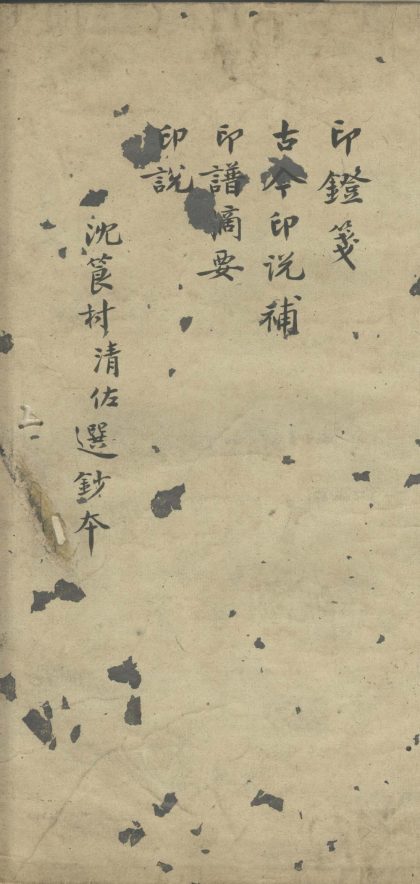 印鐙箋
古今印说補
印譜摘要
印説
沈筤村清佐選鈔本